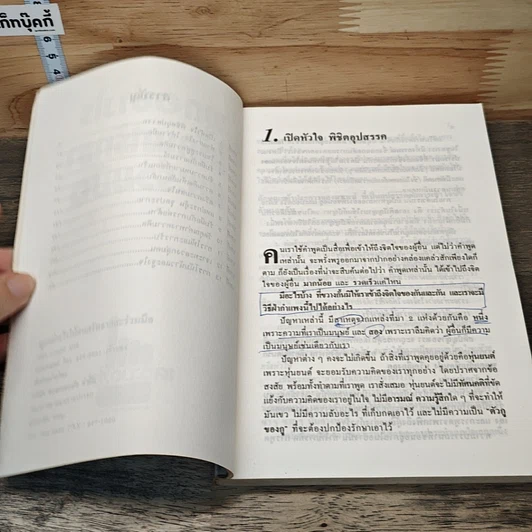 ก็ทบุ๊คกี้
6 5 4
1. เปิดหัวใจ พิชิตอุปสรรค
คนเราใช้คำพูดเป็นสื่อเพื่อเข้าให้ถึงจิตใจของผู้อื่น แต่ไม่ว่าคำพูด
เหล่านั้น จะพรั่งพรูออกมาจากปากอย่างคล่องแคล่วสักเพียงใดก็
ตาม ก็ยังเป็นเรื่องที่น่าจะสืบค้นต่อไปว่า คำพูดเหล่านั้น ได้เข้าไปถึงจิต
ใจของผู้อื่น มากน้อย และ รวดเร็วแค่ไหน
มีอะไรบ้าง ที่ขวางกั้นมิให้เราเข้าถึงจิตใจของกันและกัน และเราจะมี
วิธีฝ่ากำแพงนี้ไปได้อย่างไร
ปัญหาเหล่านี้ มีสาเหตุจากแหล่งที่มา 2 แห่งด้วยกันคือ หนึ่ง
เพราะความที่เราเป็นมนุษย์ และ สอง เพราะเราลืมคิดว่า ผู้อื่นก็มีความ
เป็นมนุษย์เช่นเดียวกับเรา
ปัญหาต่าง ๆ คงจะไม่เกิดขึ้น ถ้าสิ่งที่เราพูดคุยอยู่ด้วยคือหุ่นยนต์
เพราะหุ่นยนต์ จะยอมรับความคิดของเราทุกอย่าง โดยปราศจากข้อ
สงสัย พร้อมทั้งทำตามที่เราพูด เราสั่งเสมอ หุ่นยนต์จะไม่มีทัศนคติที่ขัด
แย้งกับความคิดของเราอยู่ในใจ ไม่มีอารมณ์ ความรู้สึกใด ๆ ที่จะทำให้
มันเขว ไม่มีความลับอะไร ที่เก็บกดเอาไว้ และไม่มีความเป็น "ตัวกู
ของกู" ที่จะต้องปกป้องรักษาเอาไว้